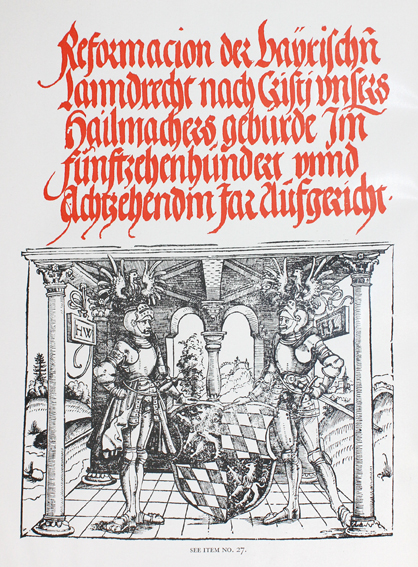 Reformacion der bayrischn̄
Lanndrecht nach Cristi vnsers
Hailmachers geburde Im̄
fünftzehenhundert vnnd
Achtzehendm Jar Aufgericht.
HW
HL
SEE ITEM NO. 27.